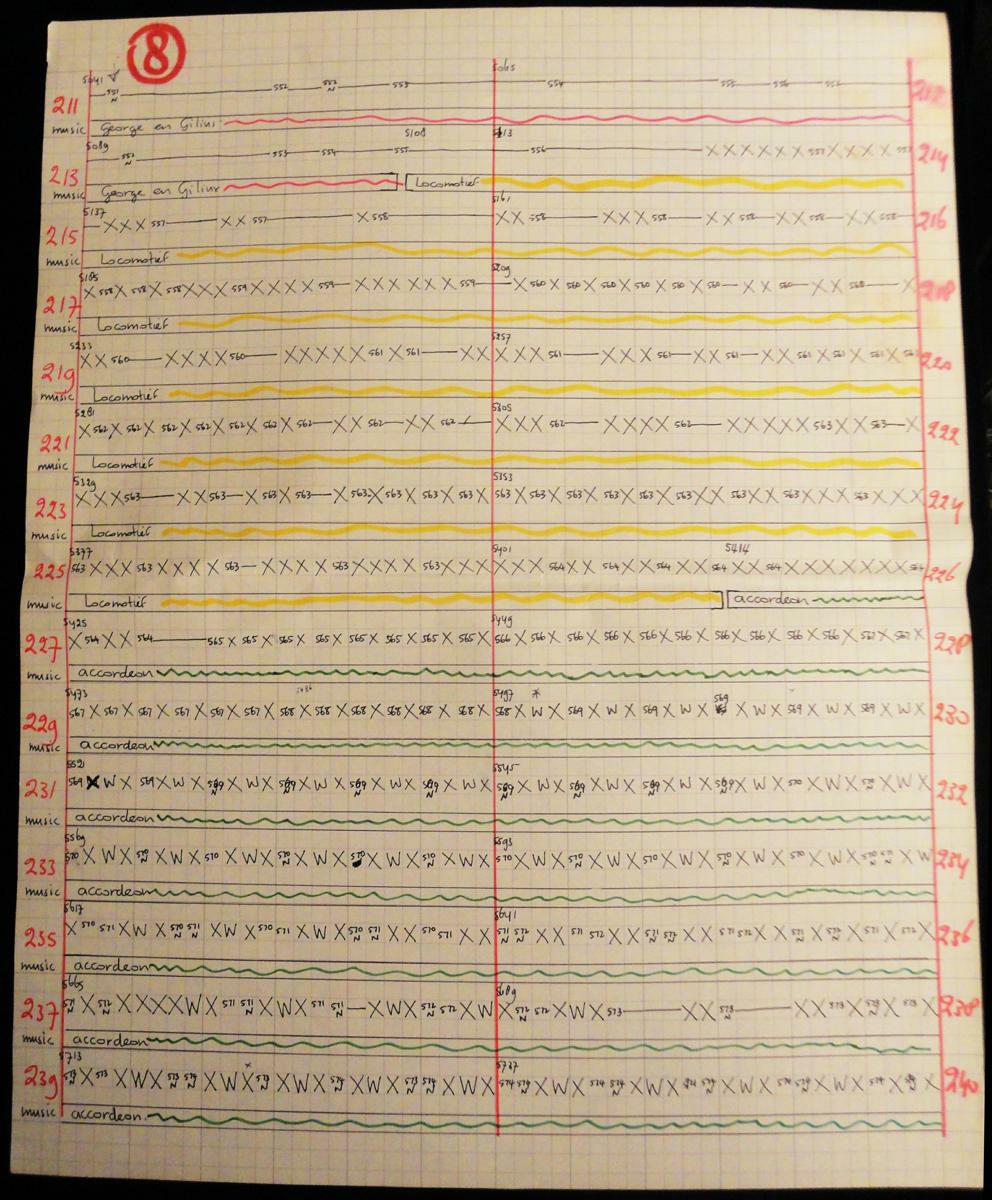 8
5041 5065
211 551 N 552 552 N 553 554
music George en Gilius
5089 5108 5113
213 552 N 553 554 555 556 214
music George en Gilius Locomotief
5137 5161
215 X X X 557 X X 557 X 558 X X 558 X X X 558 X X 558 X X 558 X X 558 216
music Locomotief
5185 5209
217 X 558 X 558 X 558 X X X 559 X X X X 559 X X X X X 559 X 560 X 560 X 560 X 560 X 560 X 560 X X 560 X X X
music Locomotief
5233 5257
219 X X 560 X X X X 560 X X X X X 561 X 561 X X X X X 561 X X X 561 X X 561 X X 561 X 561 X 561 X 220
music Locomotief
5281 5305
221 X 562 X 562 X 562 X 562 X 562 X 562 X 562 X X 562 X X 562 X X X 562 X X X X 562 X X X X X 563 X X 563 X 222
music Locomotief
5329 5353
223 X X X 563 X X 563 X 563 X 563 X 563 X 563 X 563 X 563 X 563 X 563 X 563 X 563 X 563 X 563 X X 563 X X 563 X X X 563 X X X 224
music Locomotief
5377 5401 5414
225 563 X X X 563 X X X X 563 X X X X 563 X X X X 563 X X X X X X 564 X X 564 X X 564 X X 564 X X 564 X X X X X X X 564 226
music Locomotief accordeon
5425 5449
227 X 564 X X 564 565 X 565 X 565 X 565 X 565 X 565 X 565 X 565 X 566 X 566 X 566 X 566 X 566 X 566 X 566 X 566 X 566 X 566 X 567 X 567 X 228
music accordeon
5473 5497 *
229 567 X 567 X 567 X 567 X 567 X 567 X 568 X 568 X 568 X 568 X 568 X 568 X 568 X W X 569 X W X 569 X W X 569 X W X 569 X W X 569 X W X 230
music accordeon
5521 5545
231 569 X W X 569 X W X 569 N X W X 569 N X W X 569 N X W X 569 N X W X 569 N X W X 569 N X W X 569 N X W X 569 N X W X 570 X W X 570 N X W X 232
music accordeon
5569 5593
233 570 X W X 570 N X W X 570 X W X 570 N X W X 570 X W X 570 N X W X 570 X W X 570 N X W X 570 X W X 570 N X W X 570 X W X 570 N 571 N X W 234
music accordeon
5617 5641
235 X 570 571 X W X 570 N 571 N X W X 570 571 X W X 570 N 571 N X X 570 571 X X 571 N 572 N X X 571 572 X X 571 N 572 N X X 571 572 X X 571 N X 572 N X 571 X 572 X 236
music accordeon
5665 5689
237 571 N X 572 N X X X X W X 571 571 N X W X 571 571 N X W X 572 572 N 572 X W X 572 N 572 X W X 573 X X 573 N X X X 573 X 573 N X 573 X 238
music accordeon
5713 5737
239 573 N X 573 X W X 573 N 574 N X W X 573 N X W X 574 N X W X 573 N 574 N X W X 574 574 N X W X 574 574 N X W X 574 574 N X W X 574 574 N X W X 574 X X 240
music accordeon